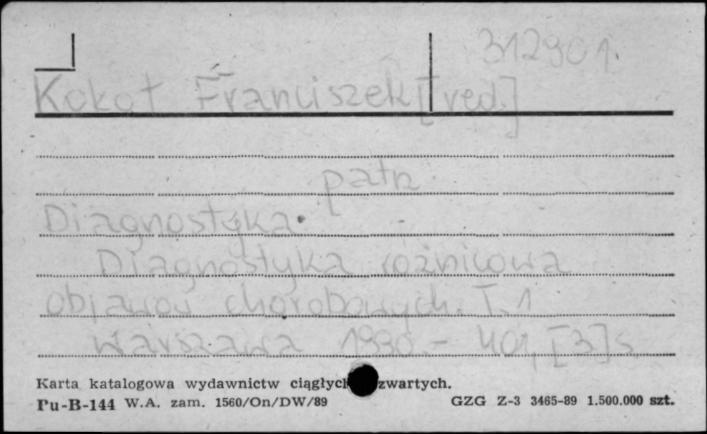 312901.
Kokot Franciszek [red.]
patrz
Diagnostyka.
Diagnostyka różnicowa
objawów chorobowych. T. 1
Warszawa 1990.- 401, [3] s.
Karta katalogowa wydawnictw ciągłych zwartych.
Pu-B-144 W.A. zam. 1560/On/DW/89
GZG Z-3 3465-89 1.500.000 szt.